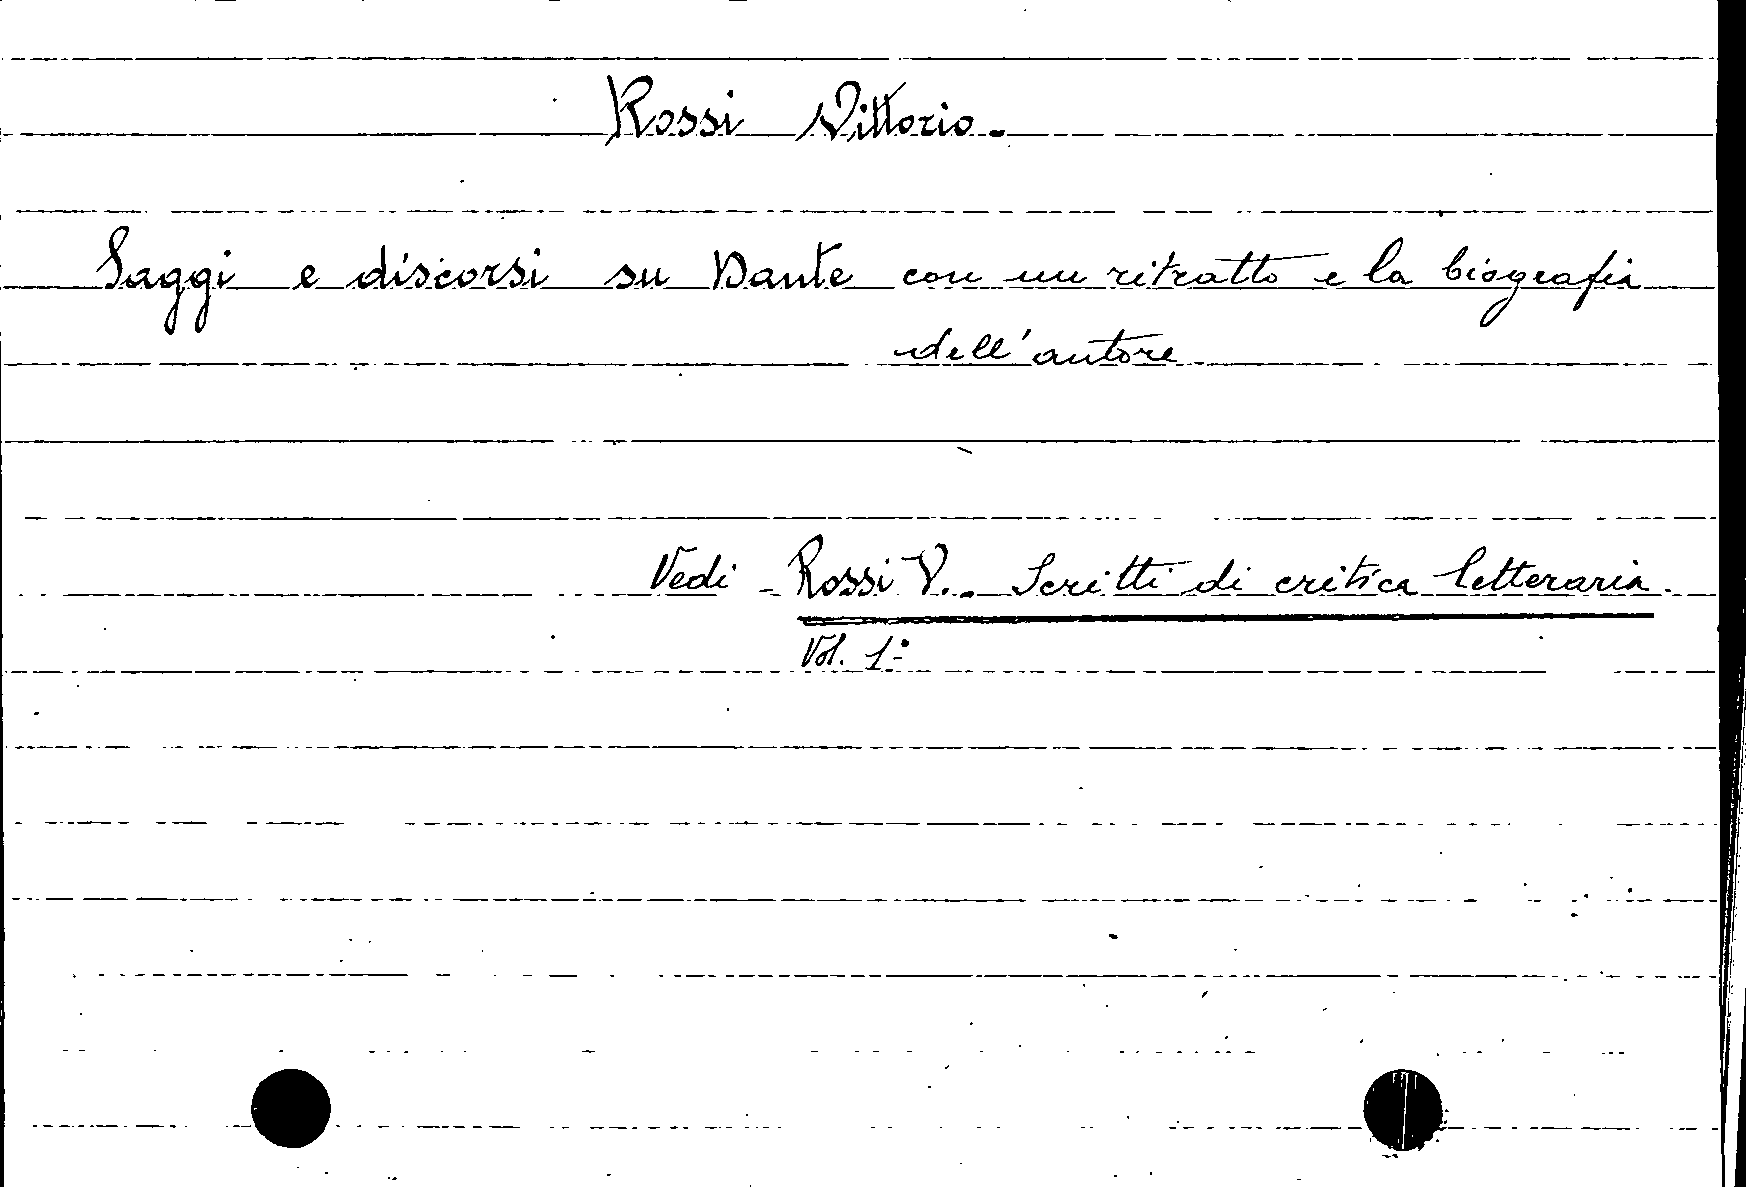 Rossi Vittorio.
Saggi e discorsi su Dante con un ritratto e la biografia
dell'autore
Vedi - Rossi V. - Scritti di critica letteraria.
Vol. 1º